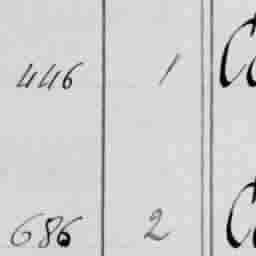 446 1
686 2